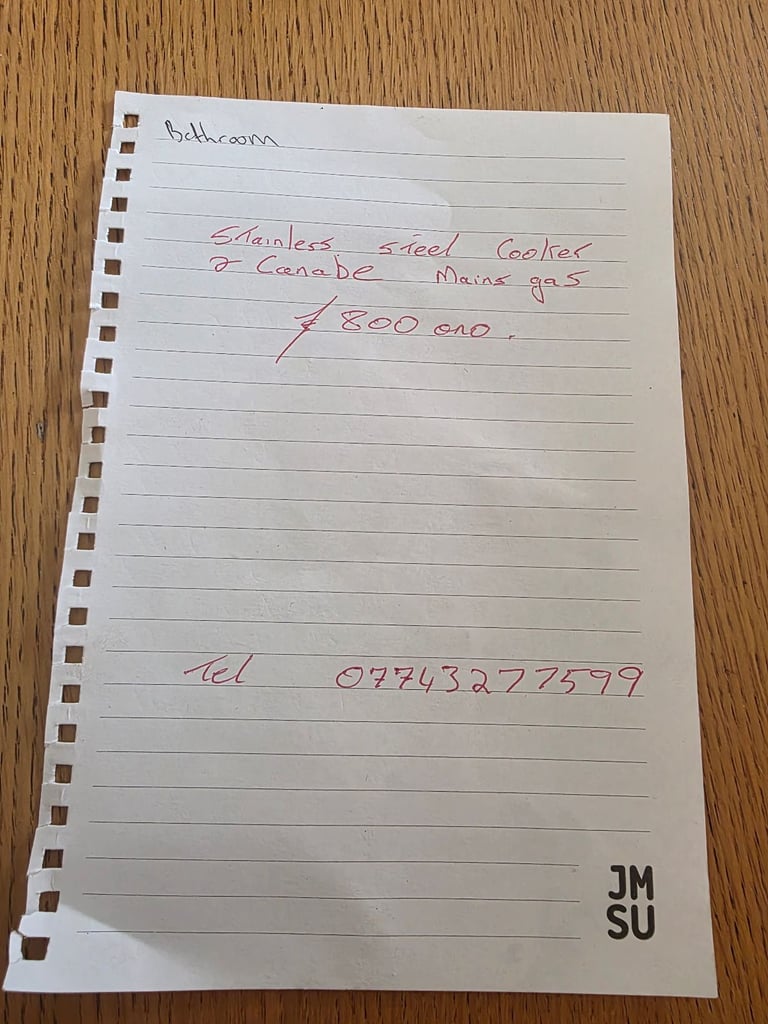 Bathroom
Stainless steel Cooker
& Canabe Mains gas
£800 ono.
Tel 07743277599
JM
SU